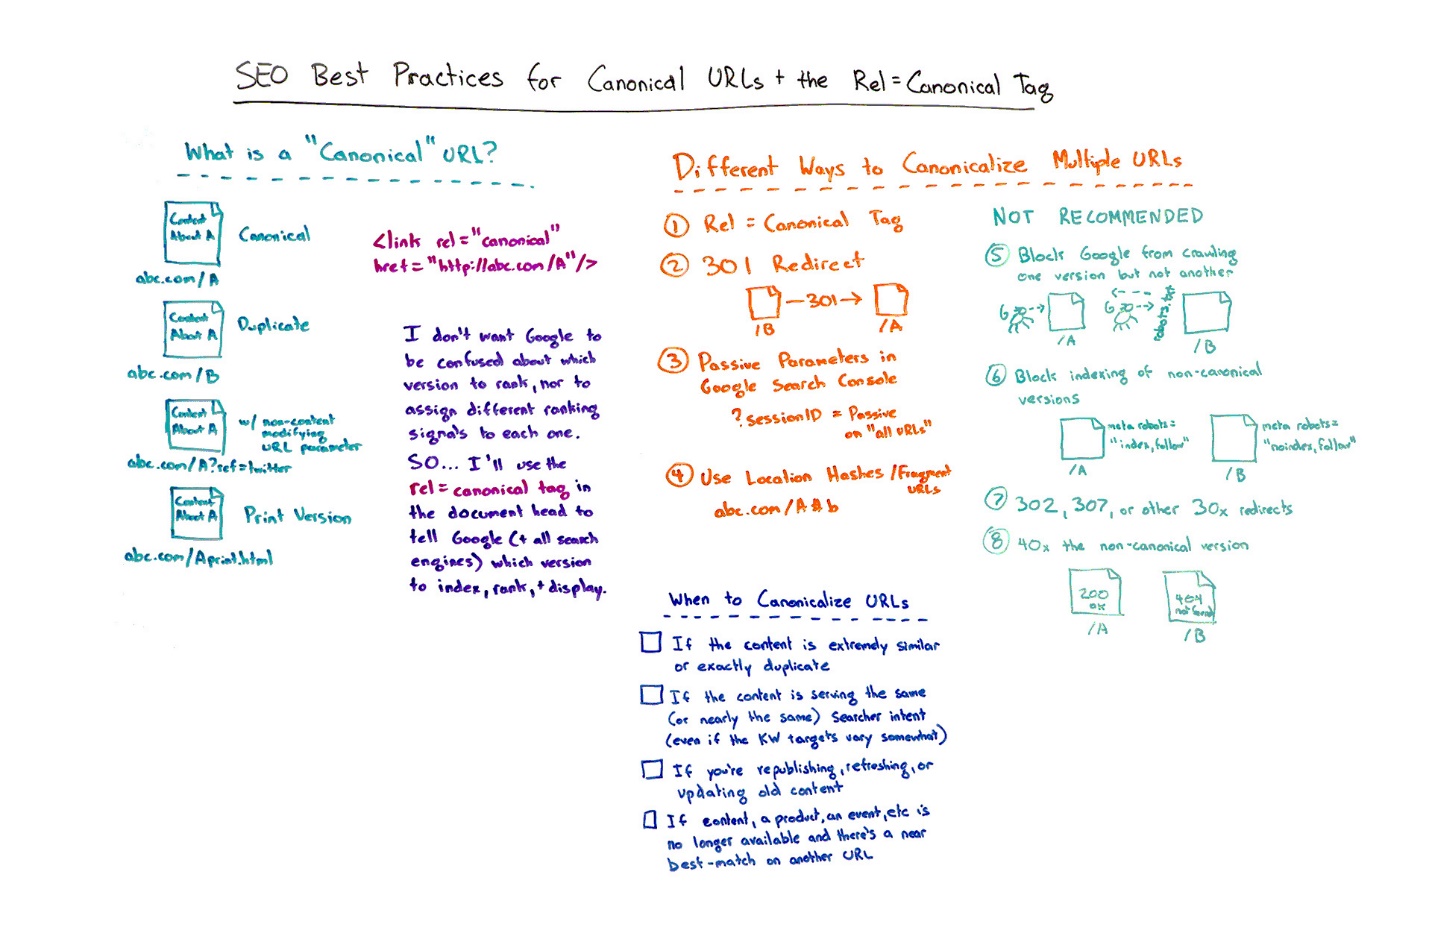 SEO Best Practices for Canonical URLs + the Rel=Canonical Tag
What is a "Canonical" URL?
Content
About A
Canonical
abc.com/A
Content
About A
Duplicate
abc.com/B
Content
About A
w/ non-content
modifying
URL parameter
abc.com/A?ref=twitter
Content
About A
Print Version
abc.com/Aprint.html
<link rel="canonical"
href="http://abc.com/A"/>
I don't want Google to
be confused about which
version to rank, nor to
assign different ranking
signals to each one.
SO... I'll use the
rel=canonical tag in
the document head to
tell Google (+ all search
engines) which version
to index, rank, + display.
Different Ways to Canonicalize Multiple URLs
① Rel=Canonical Tag
② 301 Redirect
—301→
/B
/A
③ Passive Parameters in
Google Search Console
?sessionID = Passive
on "all URLs"
④ Use Location Hashes/Fragment
URLs
abc.com/A#b
NOT RECOMMENDED
⑤ Blocks Google from crawling
one version but not another
robots.txt
/A
/B
⑥ Block indexing of non-canonical
versions
meta robots=
"index,follow"
/A
meta robots=
"noindex,follow"
/B
⑦ 302, 307, or other 30x redirects
⑧ 40x the non-canonical version
200
OK
/A
404
not found
/B
When to Canonicalize URLs
If the content is extremely similar
or exactly duplicate
If the content is serving the same
(or nearly the same) searcher intent
(even if the KW targets vary somewhat)
If you're republishing, refreshing, or
updating old content
If content, a product, an event, etc is
no longer available and there's a near
best-match on another URL